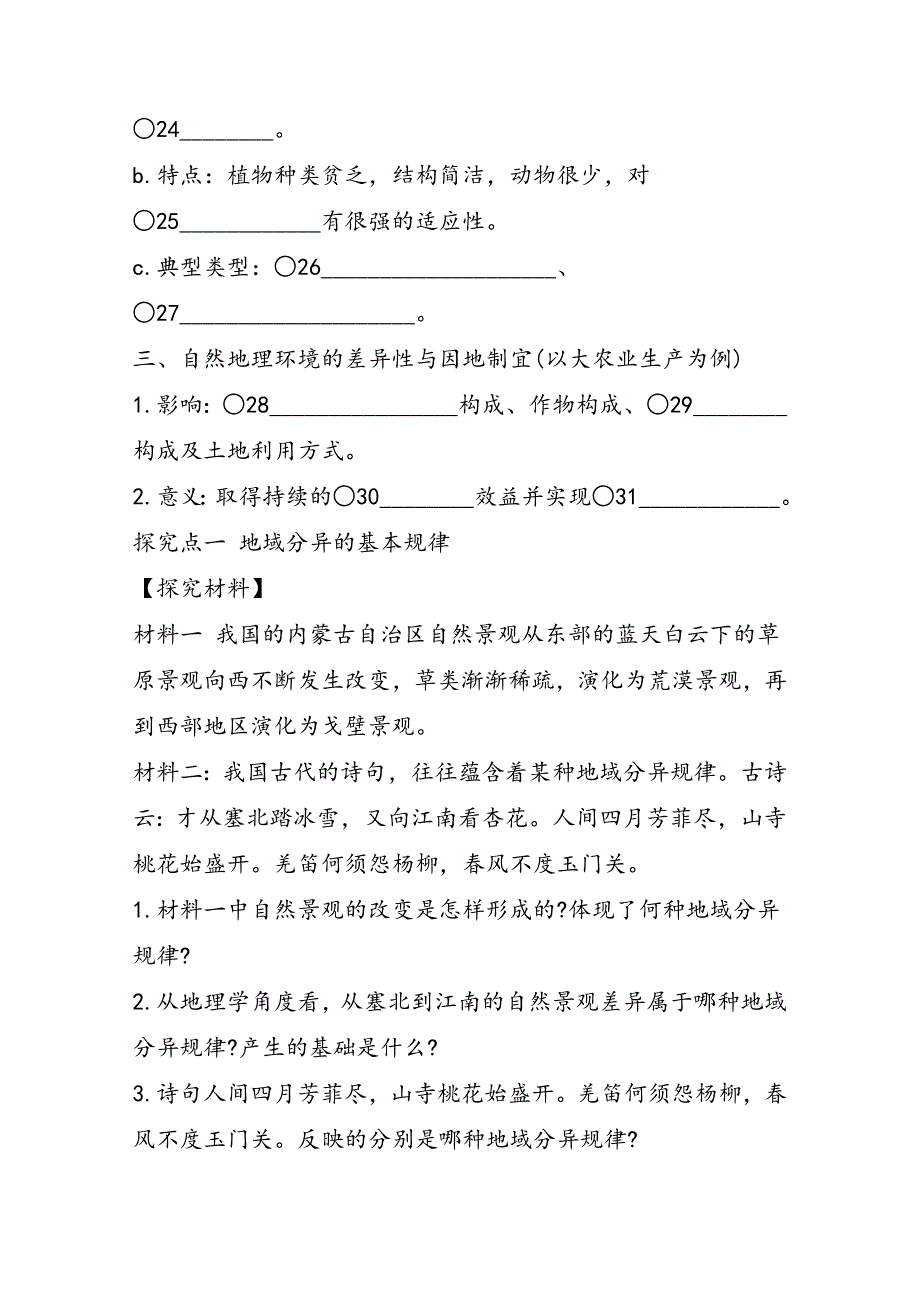 ○24________。
b.特点：植物种类贫乏，结构简洁，动物很少，对
○25____________有很强的适应性。
c.典型类型：○26____________________、
○27____________________。
三、自然地理环境的差异性与因地制宜(以大农业生产为例)
1.影响：○28________________构成、作物构成、○29________
构成及土地利用方式。
2.意义：取得持续的○30________效益并实现○31____________。
探究点一 地域分异的基本规律
【探究材料】
材料一 我国的内蒙古自治区自然景观从东部的蓝天白云下的草
原景观向西不断发生改变，草类渐渐稀疏，演化为荒漠景观，再
到西部地区演化为戈壁景观。
材料二：我国古代的诗句，往往蕴含着某种地域分异规律。古诗
云：才从塞北踏冰雪，又向江南看杏花。人间四月芳菲尽，山寺
桃花始盛开。羌笛何须怨杨柳，春风不度玉门关。
1.材料一中自然景观的改变是怎样形成的?体现了何种地域分异
规律?
2.从地理学角度看，从塞北到江南的自然景观差异属于哪种地域
分异规律?产生的基础是什么?
3.诗句人间四月芳菲尽，山寺桃花始盛开。羌笛何须怨杨柳，春
风不度玉门关。反映的分别是哪种地域分异规律?